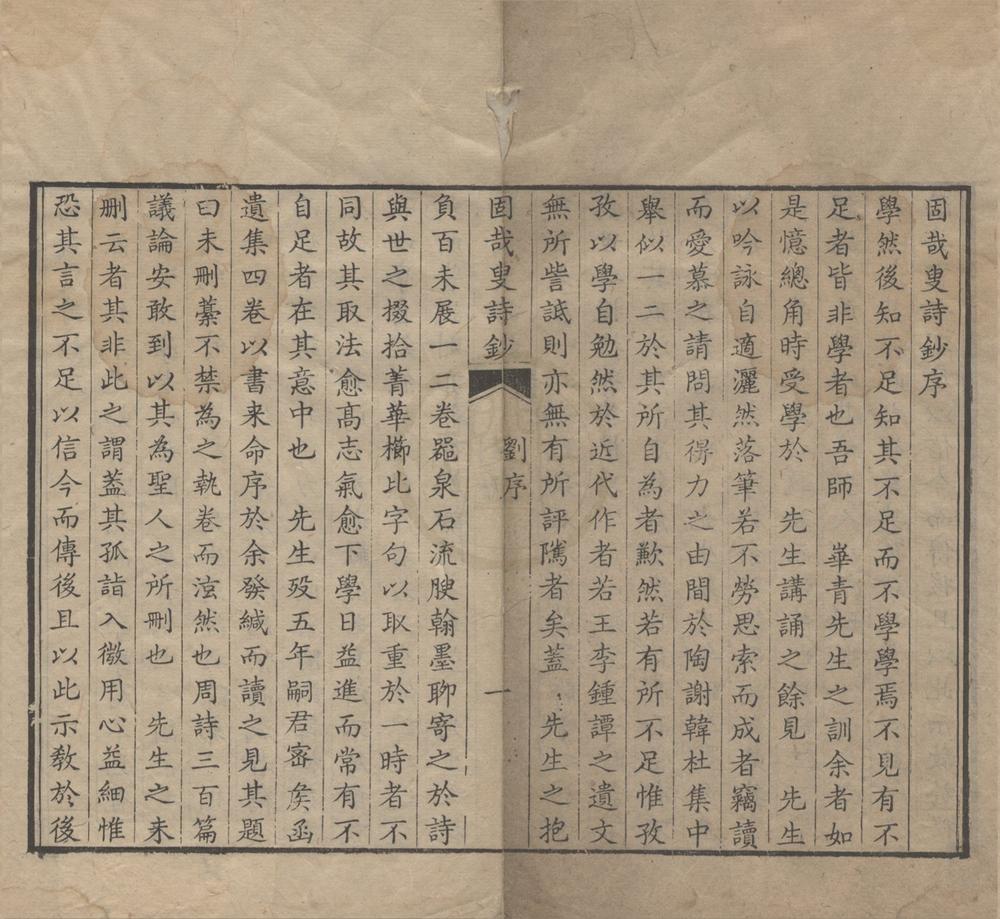 固哉叟詩鈔序
學然後知不足知其不足而不學學焉不見有不
足者皆非學者也吾師　崋青先生之訓余者如
是憶總角時受學於　先生講誦之餘見　先生
以吟詠自適灑然落筆若不勞思索而成者竊讀
而愛慕之請問其得力之由間於陶謝韓杜集中
舉似一二於其所自為者歉然若有所不足惟孜
孜以學自勉然於近代作者若王李鍾譚之遺文
無所訾詆則亦無有所評隲者矣蓋　先生之抱
固哉叟詩鈔　劉序　一
負百未展一二卷軀泉石流朡翰墨聊寄之於詩
與世之掇拾菁華櫛比字句以取重於一時者不
同故其取法愈高志氣愈下學日益進而常有不
自足者在其意中也　先生歿五年嗣君宻矦函
遺集四卷以書来命序於余發緘而讀之見其題
曰未刪藁不禁為之執卷而泫然也周詩三百篇
議論安敢到以其為聖人之所刪也　先生之未
刪云者其非此之謂蓋其孤詣入微用心益細惟
恐其言之不足以信今而傳後且以此示教於後